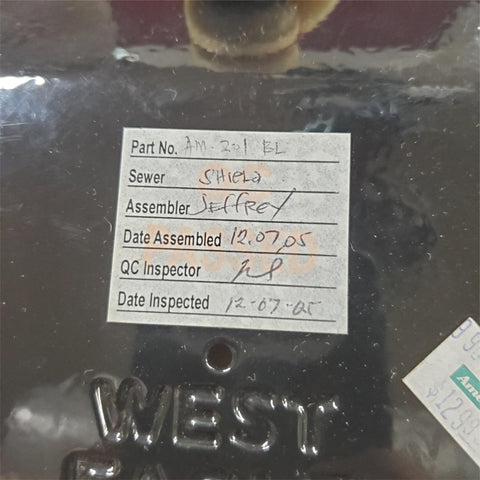 Part No. AM-201 BL
Sewer SHIELA
Assembler JEFFREY
Date Assembled 12.07.05
QC Inspector
Date Inspected 12-07-05
QC
PASSED
WEST